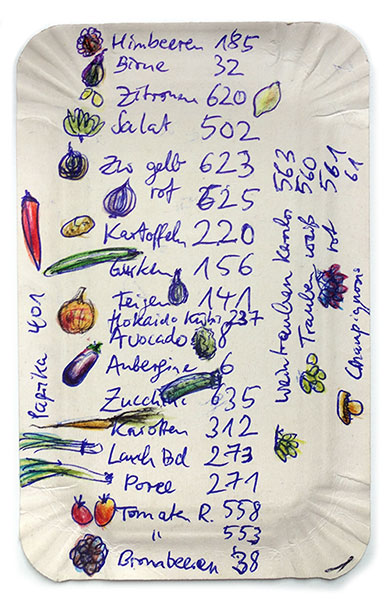 Himbeeren 185
Birne 32
Zitronen 620
Salat 502
Zwi gelb 623
rot 625
Kartoffeln 220
Gurken 156
Feigen 141
Hokaido Kürbi 237
Avocado 8
Aubergine 6
Zucchini 635
Karotten 312
Lauch Bd 273
Poree 271
Tomaten R. 558
" 553
Brombeeren 38
Paprika 401
Weintrauben kernlos 563
Trauben weiß 560
rot 561
Champignons 61
1